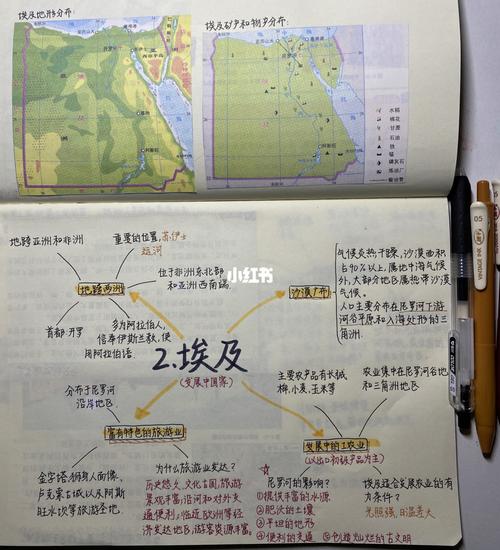 埃及地形分布:
埃及矿产和物产分布:
水稻
棉花
甘蔗
石油
铁
锰
磷灰石
炼油厂
输油管
地跨亚洲和非洲
重要的位置,苏伊士
运河
地跨两洲
位于非洲东北部
和亚洲西南端
首都:开罗
多为阿拉伯人,
信奉伊斯兰教,使
用阿拉伯语.
小红书
沙漠广布
气候炎热干燥,沙漠面积
占90%以上,属地中海气候
外,大部分地区属热带沙漠
气候。
人口主要分布在尼罗河下游
河谷平原和入海处形的三
角洲.
2.埃及
(发展中国家)
分布于尼罗河
沿岸地区
富有特色的旅游业
金字塔.狮身人面像.
卢克蒙古城以及阿斯
旺水坝等旅游圣地。
为什么旅游业发达?
历史悠久,文化古国,旅游
景观丰富;沿河和对外交
通便利;临近欧洲等经
济发达地区,游客资源丰富。
主要农产品有长绒
棉,小麦,玉米等
农业集中在尼罗河谷地
和三角洲地区
发展中的工农业
(以出口初级产品为主)
尼罗河的影响?
①提供丰富的水源
②肥沃的土壤
③平坦的地形
④便利的交通 ⑤创造灿烂的古文明
埃及适合发展农业的有
力条件?
光照强,日温差大
05